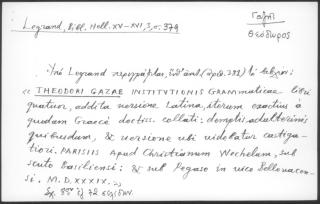 Γαζῆς
Θεόδωρος
Legrand, Bibl. Hell. XV-XVI, 3, σ. 379
Ὑπὸ Legrand περιγράφεται, ἔνθ' ἀνωτ. (ἀριθ. 382) τὸ
« THEODORI GAZAE INSTITUTIONIS GRAMMaticae libri
quatuor, addita versione Latina, iterum exactius à
quodam Graecè doctiss. collati: demptis adulterinis
quibusdam, & versione ubi videbatur castiga-
tiori. PARISIIS Apud Christianum Wechelum, sub
scuto Basiliensi: & sub Pegaso in vico Bellovacen-
si. M.D.XXXIX. »